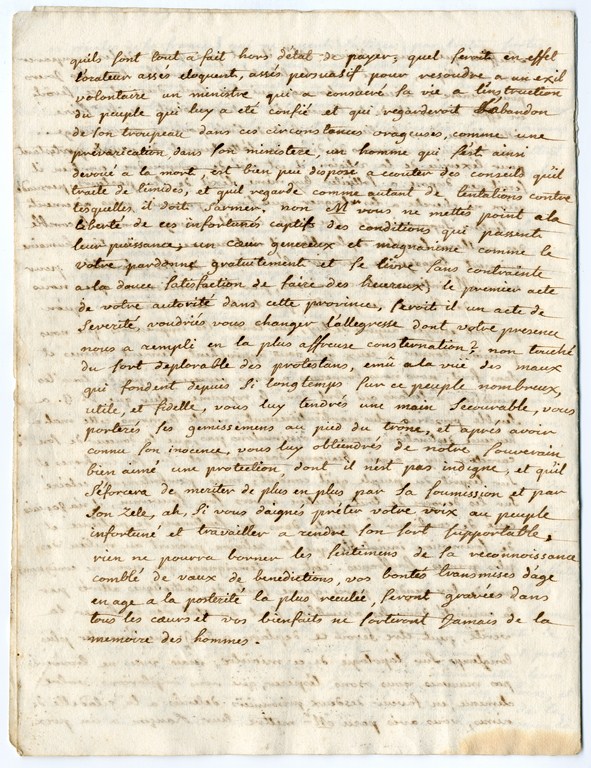 quils sont tout a fait hors d'état de payer; quel seroit en effet
l'orateur assés eloquent, assés persuasif pour resoudre a un exil
volontaire un ministre qui a consacré sa vie a l'instruction
du peuple qui luy a eté confié et qui regarderoit l'abandon
de son troupeau dans ces circonstances orageuses, comme une
prévarication dans son ministere, un homme qui s'est ainsi
devoué a la mort, est bien peu disposé a ecouter des conseils qu'il
traite de timides, et qu'il regarde comme autant de tentations contre
lesquelles il doit s'armer, non Mgr vous ne mettés point a la
liberté de ces infortunés captifs des conditions qui passent
leur puissance, un cœur genereux et magnanime comme le
votre pardonne gratuitement et se livre sans contrainte
a la douce satisfaction de faire des heureux; le premier acte
de votre autorité dans cette province, seroit il un acte de
severité, voudriés vous changer l'allegresse dont votre presence
nous a rempli en la plus affreuse consternation? non touché
du sort deplorable des protestans, emû a la vüe des maux
qui fondent depuis si longtemps sur ce peuple nombreux,
utile, et fidelle, vous luy tendrés une main secourable, vous
porterés ses gemissemens au pied du trone, et aprés avoir
connu son inocence, vous luy obtiendrés de notre souverain
bien aimé une protection, dont il n'est pas indigne, et qu'il
s'éforcera de meriter de plus en plus par sa soumission et par
son zele, ah, si vous daignés préter votre voix au peuple
infortuné et travailler a rendre son sort supportable,
rien ne pourra borner les sentimens de sa reconnoissance
comblé de vœux de benedictions, vos bontés transmises d'age
en age a la postérité la plus reculée, seront gravées dans
tous les cœurs et vos bienfaits ne sortiront jamais de la
memoire des hommes.